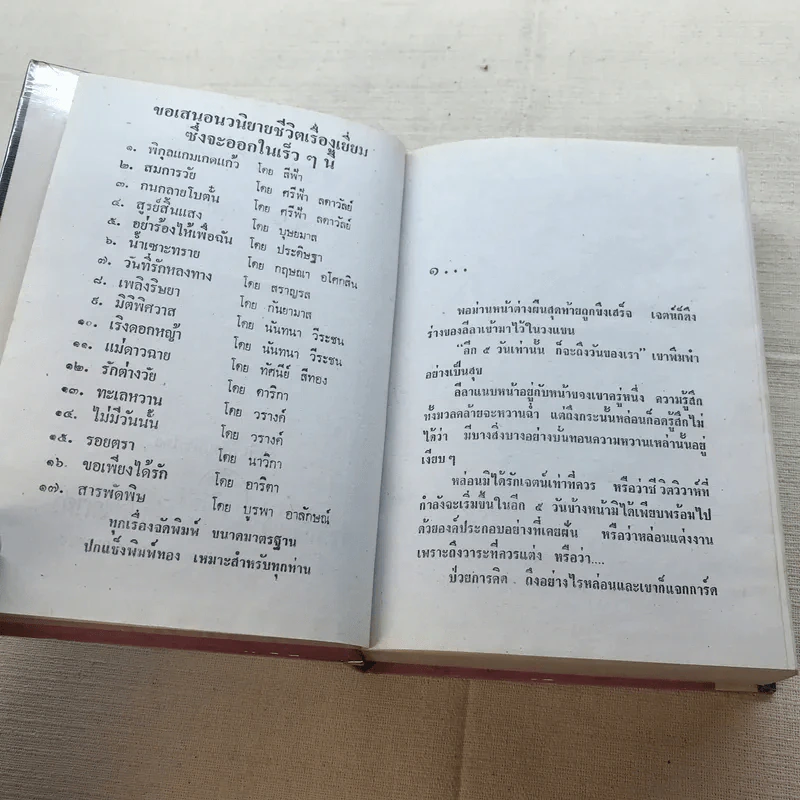 ขอเสนอนวนิยายชีวิตเรื่องเยี่ยม
ซึ่งจะออกในเร็ว ๆ นี้
๑. พิกุลแกมเกดแก้ว โดย สีฟ้า
๒. สมการวัย โดย ศรีฟ้า ลดาวัลย์
๓. กนกลายโบตั๋น โดย ศรีฟ้า ลดาวัลย์
๔. สูรย์สิ้นแสง โดย บุษยมาส
๕. อย่าร้องไห้เพื่อฉัน โดย ประดิษฐา
๖. น้ำเซาะทราย โดย กฤษณา อโศกสิน
๗. วันที่รักหลงทาง โดย สราญรส
๘. เพลิงริษยา โดย กันยามาส
๙. มิติพิศวาส โดย นันทนา วีระชน
๑๐. เริงดอกหญ้า โดย นันทนา วีระชน
๑๑. แม่ดาวฉาย โดย ทัศนีย์ สีทอง
๑๒. รักต่างวัย โดย ดาริกา
๑๓. ทะเลหวาน โดย วรางค์
๑๔. ไม่มีวันนั้น โดย วรางค์
๑๕. รอยตรา โดย นาวิกา
๑๖. ขอเพียงได้รัก โดย อาริตา
๑๗. สารพัดพิษ โดย บูรพา อาลักษณ์
ทุกเรื่องจัดพิมพ์ ขนาดมาตรฐาน
ปกแข็งพิมพ์ทอง เหมาะสำหรับทุกท่าน
๑...
พอม่านหน้าต่างผืนสุดท้ายถูกขึงเสร็จ เจตน์ก็ดึง
ร่างของลีลาเข้ามาไว้ในวงแขน
"อีก ๕ วันเท่านั้น ก็จะถึงวันของเรา" เขาพึมพำ
อย่างเป็นสุข
ลีลาแนบหน้าอยู่กับหน้าของเขาครู่หนึ่ง ความรู้สึก
ทั้งมวลคล้ายจะหวานฉ่ำ แต่ถึงกระนั้นหล่อนก็อดรู้สึกไม่
ได้ว่า มีบางสิ่งบางอย่างบั่นทอนความหวานเหล่านั้นอยู่
เงียบ ๆ
หล่อนมิได้รักเจตน์เท่าที่ควร หรือว่าชีวิตวิวาห์ที่
กำลังจะเริ่มขึ้นในอีก ๕ วันข้างหน้ามิได้เพียบพร้อมไป
ด้วยองค์ประกอบอย่างที่เคยฝัน หรือว่าหล่อนแต่งงาน
เพราะถึงวาระที่ควรแต่ง หรือว่า....
ป่วยการคิด ถึงอย่างไรหล่อนและเขาก็แจกการ์ด